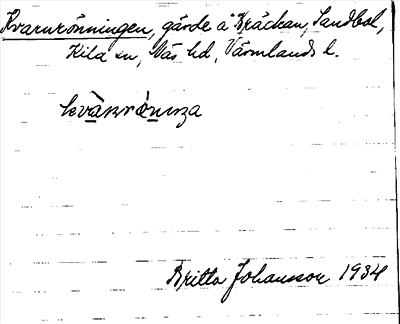 Kvarnrönningen, gärde å Bräckan, Sandbol,
Kila sn, Näs hd, Värmlands l.
Britta Johansson 1934